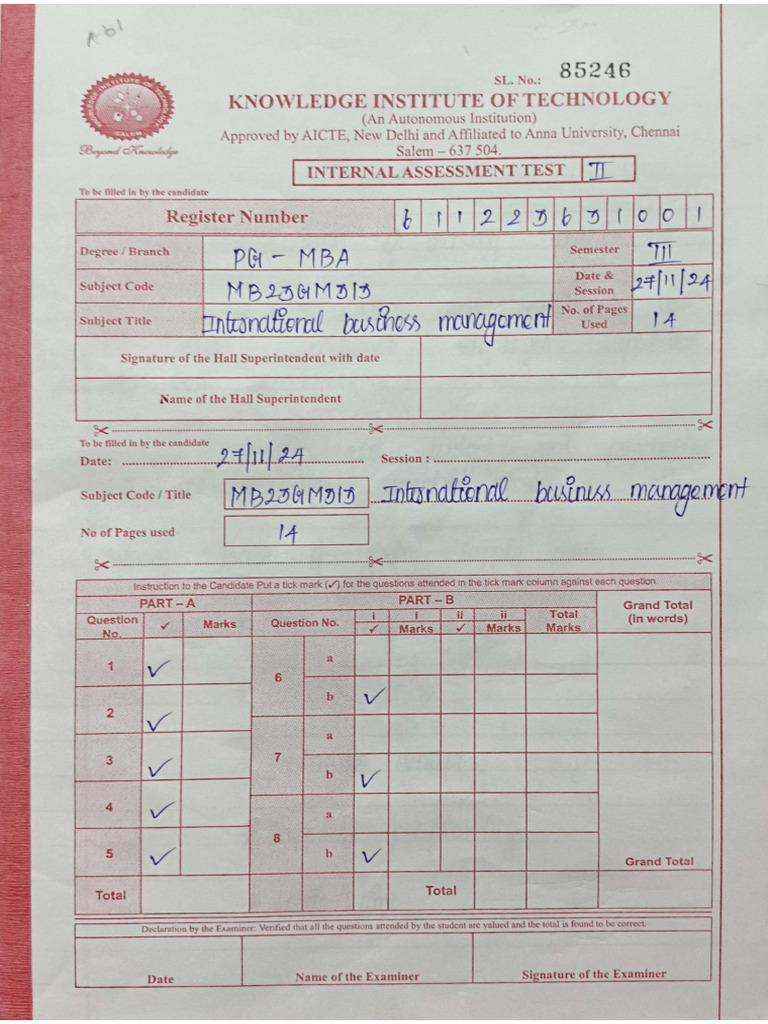 SL. No.: 85246
KNOWLEDGE INSTITUTE OF TECHNOLOGY
(An Autonomous Institution)
Approved by AICTE, New Delhi and Affiliated to Anna University, Chennai
Salem – 637 504.
Beyond Knowledge
INTERNAL ASSESSMENT TEST II
To be filled in by the candidate
Register Number 6 1 1 2 2 3 6 3 1 0 0 1
Degree / Branch PG - MBA Semester III
Subject Code Date & Session 27/11/24
Subject Title International business management No. of Pages Used 14
Signature of the Hall Superintendent with date
Name of the Hall Superintendent
To be filled in by the candidate
Date: 27/11/24 Session :
Subject Code / Title International business management
No of Pages used 14
Instruction to the Candidate Put a tick mark (✓) for the questions attended in the tick mark column against each question
PART – A PART – B Grand Total (in words)
Question No. ✓ Marks Question No. i ✓ i Marks ii ✓ ii Marks Total Marks
1 ✓ 6 a
2 ✓ b ✓
3 ✓ 7 a
b ✓
4 ✓ 8 a
5 ✓ b ✓ Grand Total
Total Total
Declaration by the Examiner: Verified that all the questions attended by the student are valued and the total is found to be correct.
Date Name of the Examiner Signature of the Examiner